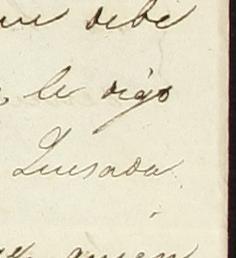 ue debe
le digo
Quesada
quien